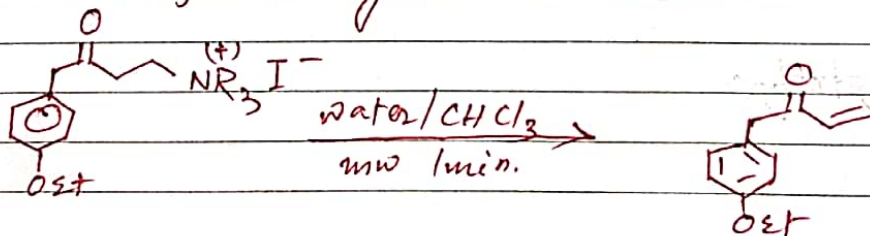 O
(+)
NR3 I−
O
water/CHCl3
mw 1min.
OEt
OEt